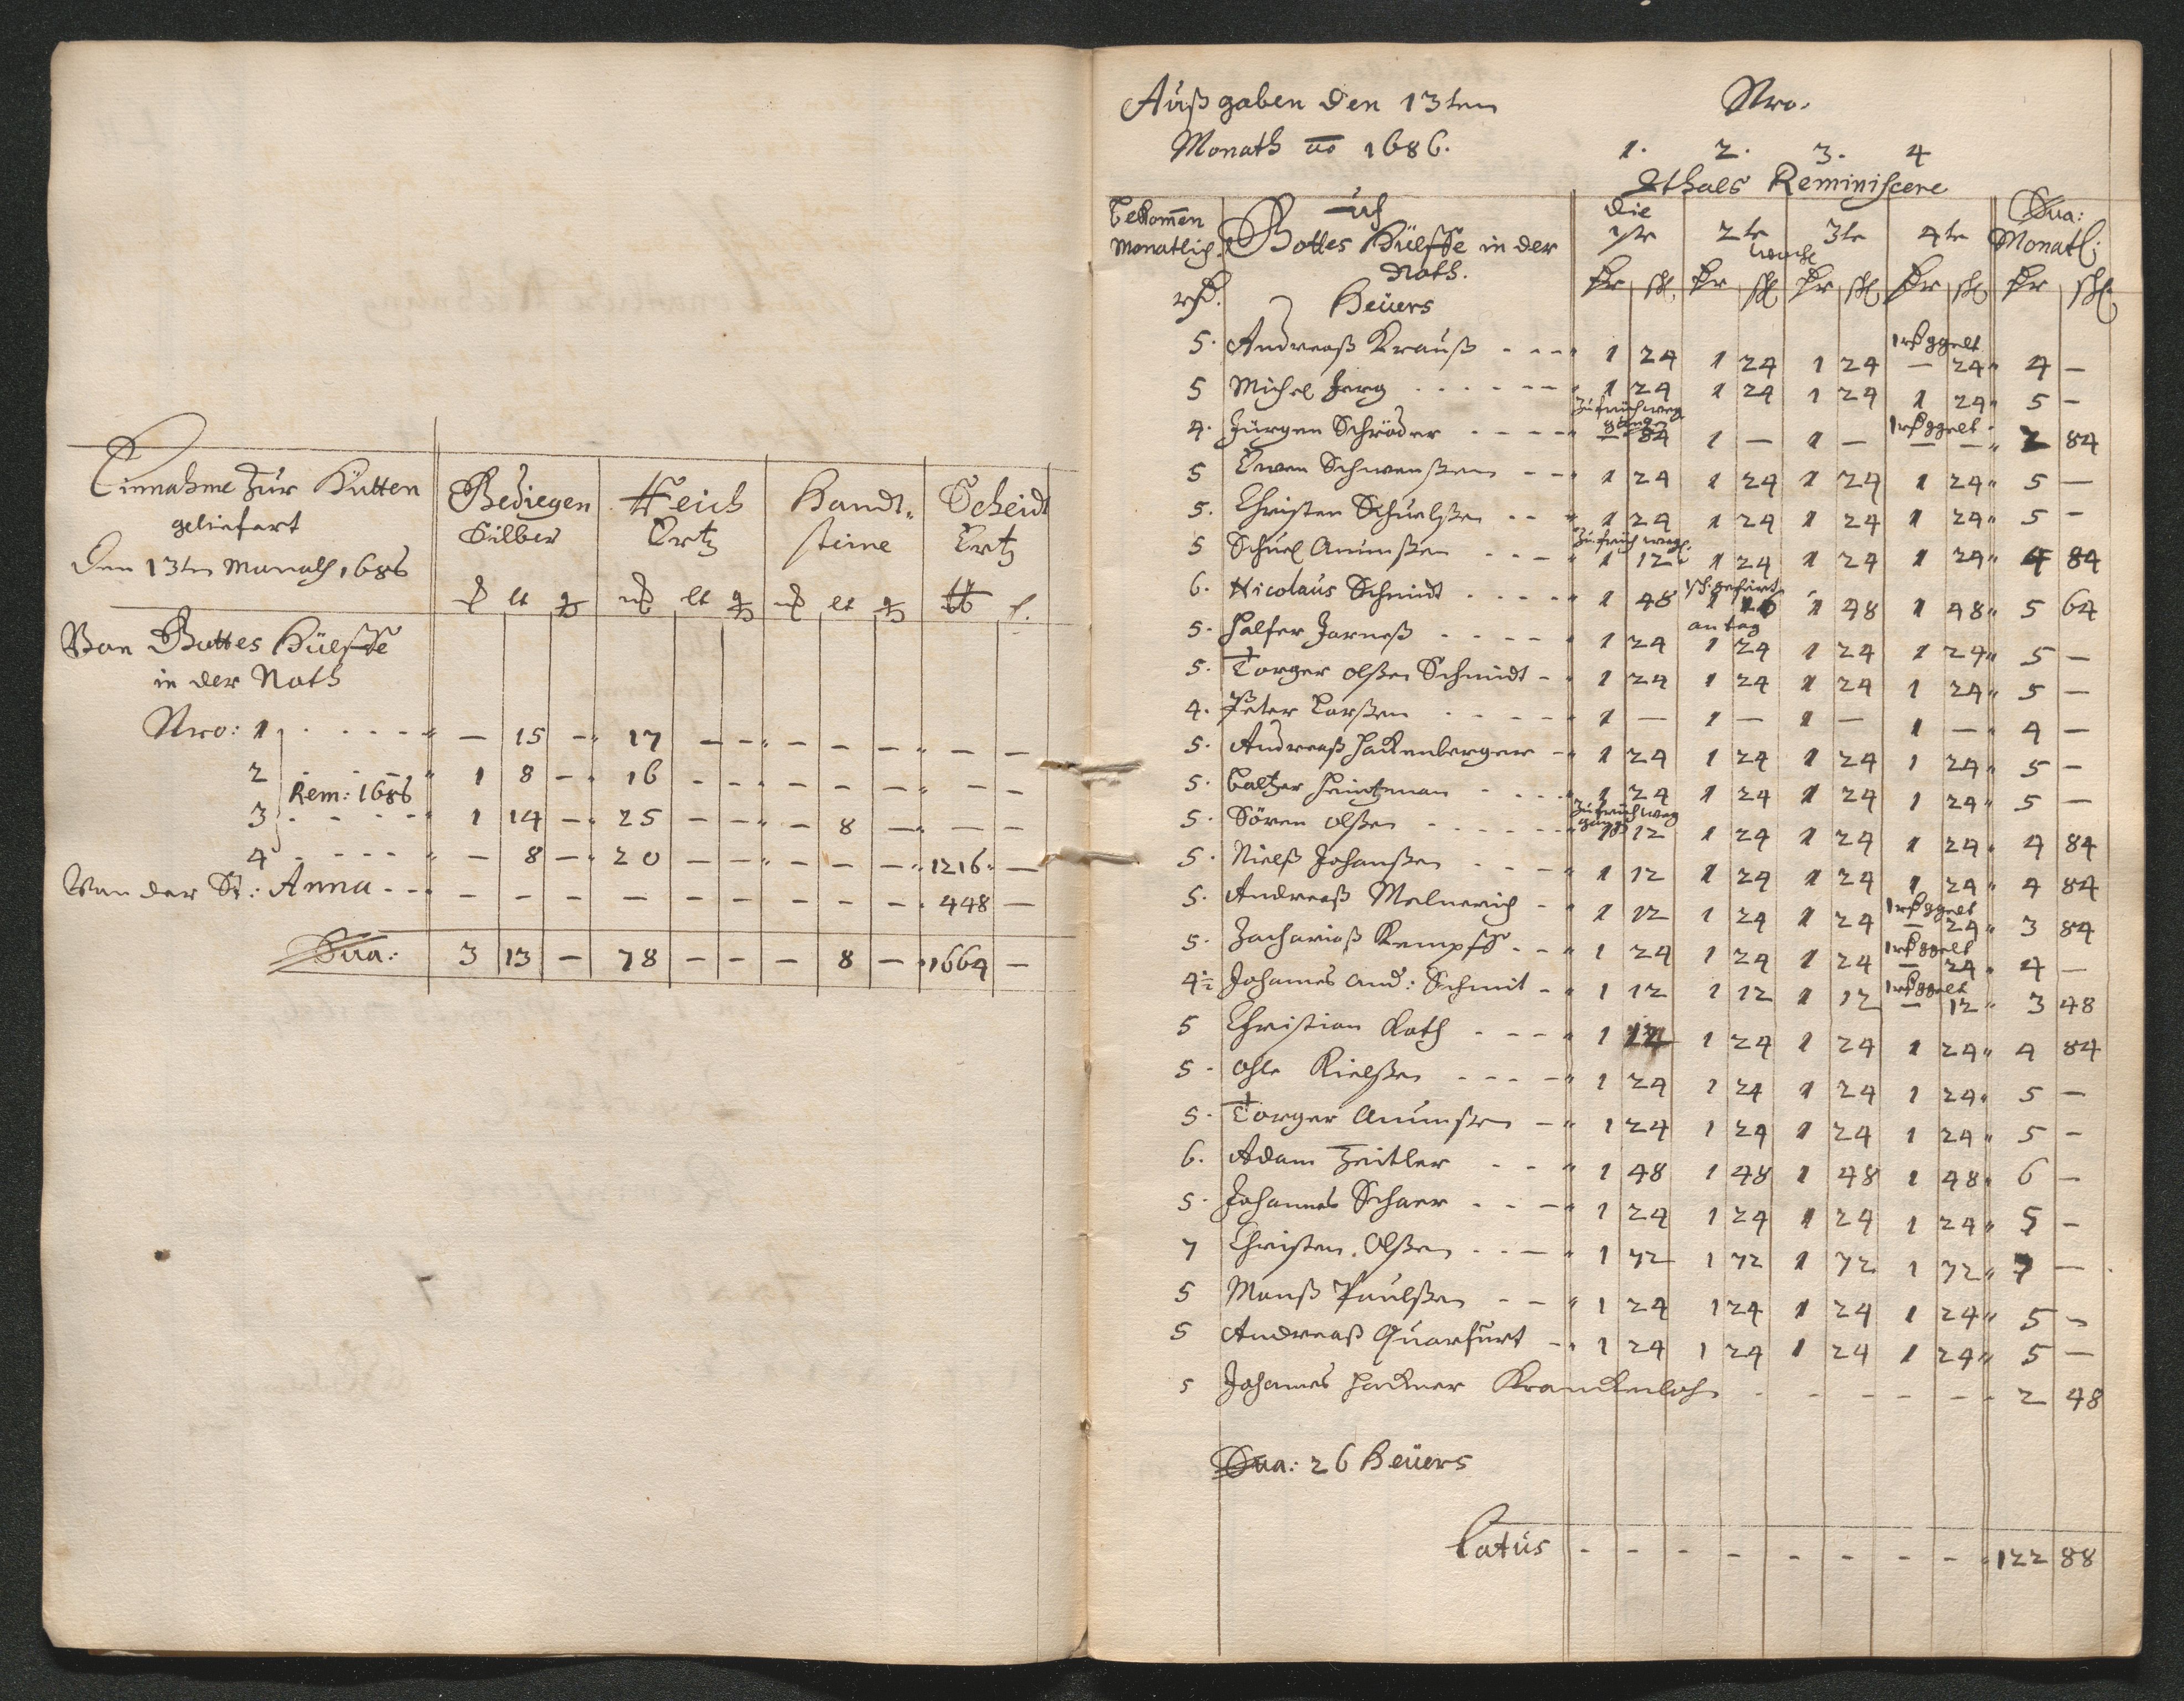 Einnahme Zur Hütten
geliefert
Den 13ten Monath 1686
Gediegen Silber | Reich Ertz | Handtsteine | Scheidt Ertz
lt | lt | lt
Von Gottes Hülffe
in der Noth
Nro: 1 - - - - — 15 — 17 — — — — — — —
2 - - - 1 8 — 16 — — — — — — —
Rem: 1686
3 - - - - 1 14 — 25 — — — 8 — — —
4 - - - - — 8 — 20 — — — — — 1216 —
Von der St: Anna - - - — — — — — — — — — 448 —
Sua: 3 13 — 78 — — — 8 — 1664 —
Außgaben den 13ten
Monath ao 1686.
Nro.
1. 2. 3. 4
Qthals Reminiscere
Bekomen Monatlich
Gottes Hülffe in der
Noth.
Heüers
Die 1te 2te 3te 4te
woche
Sua:
Monatl:
5. Andreaß Krauß - - - 1 24 1 24 1 24 — 24 4 —
5 Michel Jerg - - - - - 1 24 1 24 1 24 1 24 5 —
Zu früh weg gang
4. Jürgen Schröder - - - - — 84 1 — 1 — — — 2 84
5 Swen Schwenßen - - - 1 24 1 24 1 24 1 24 5 —
5. Christen Schuelßen - - 1 24 1 24 1 24 1 24 5 —
Zu früh weg
5 Schuel Amunßen - - - 1 12 1 24 1 24 1 24 4 84
6. Nicolaus Schmidt - - - - 1 48 1 1 48 1 48 5 64
5. Halfer Jarneß - - - - 1 24 1 24 1 24 1 24 5 —
5. Torger Olßen Schmidt - 1 24 1 24 1 24 1 24 5 —
4. Peter Larßen - - - - 1 — 1 — 1 — 1 — 4 —
5. Andreaß Hackenberger - 1 24 1 24 1 24 1 24 5 —
5. Baltzer Heintzman - - - 1 24 1 24 1 24 1 24 5 —
Zu früh weg gang
5. Sören Olßen - - - - - 1 12 1 24 1 24 1 24 4 84
5. Nielß Johanßen - - - 1 12 1 24 1 24 1 24 4 84
5. Andreaß Melnerich - 1 12 1 24 1 24 — 24 3 84
5. Zachariaß Kempff - - - 1 24 1 24 1 24 — 24 4 —
4½ Johannes And: Schmit - 1 12 1 12 1 12 — 12 3 48
5 Christian Roth - - - - 1 12 1 24 1 24 1 24 4 84
5. Ohle Nielßen - - - - 1 24 1 24 1 24 1 24 5 —
5. Torger Amunßen - 1 24 1 24 1 24 1 24 5 —
6. Adam Zeitler - - 1 48 1 48 1 48 1 48 6 —
5. Johannes Schaer - - - 1 24 1 24 1 24 1 24 5 —
7 Christen Olßen - - - 1 72 1 72 1 72 1 72 7 —
5 Monß Paulßen - - 1 24 1 24 1 24 1 24 5 —
5 Andreaß Querfurt - 1 24 1 24 1 24 1 24 5 —
5 Johannes Hackner Kranckenlohn - - - - - - 2 48
Sua: 26 Heüers
Latus - - - - - - - - 122 88